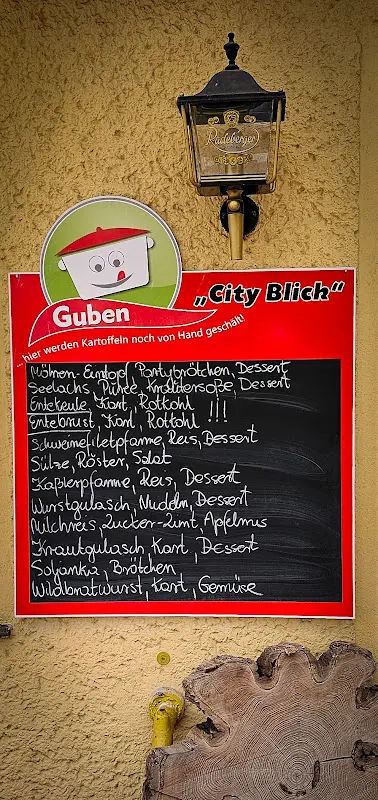 Radeberger
„City Blick“
Guben
...hier werden Kartoffeln noch von Hand geschält!
Möhren-Eintopf, Partybrötchen, Dessert
Seelachs, Püree, Kräutersoße, Dessert
Entekeule, Kart, Rotkohl !!!
Entebrust, Kart, Rotkohl
Schweinefiletpfanne, Reis, Dessert
Sülze, Röster, Salat
Kaßlerpfanne, Reis, Dessert
Wurstgulasch, Nudeln, Dessert
Milchreis, Zucker-Zimt, Apfelmus
Krautgulasch, Kart, Dessert
Soljanka, Brötchen
Wildbratwurst, Kart, Gemüse